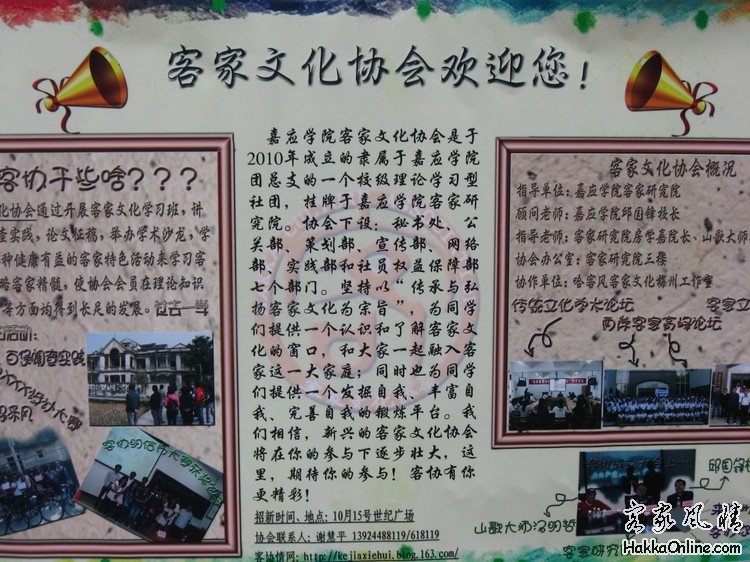 客家文化协会欢迎您！
客协干些啥？？？
化协会通过开展客家文化学习班，讲
实践，论文征稿，举办学术沙龙，学
种健康有益的客家特色活动来学习客
略客家精髓，使协会会员在理论知识
等方面均得到长足的发展。过去一学
活动：
客协明信片大赛获奖
嘉应学院客家文化协会是于
2010年成立的隶属于嘉应学院
团总支的一个校级理论学习型
社团，挂牌于嘉应学院客家研
究院。协会下设：秘书处，公
关部、策划部、宣传部、网络
部、实践部和社员权益保障部
七个部门。坚持以“传承与弘
扬客家文化为宗旨”，为同学
们提供一个认识和了解客家文
化的窗口，和大家一起融入客
家这一大家庭；同时也为同学
们提供一个发掘自我、丰富自
我、完善自我的锻炼平台。我
们相信，新兴的客家文化协会
将在你的参与下逐步壮大，这
里，期待你的参与！客协有你
更精彩！
招新时间、地点：10月15号世纪广场
协会联系人：谢慧平 13924488119/618119
客协情网：http://kejiaxiehui.blog.163.com/
客家文化协会概况
指导单位：嘉应学院客家研究院
顾问老师：嘉应学院邱国锋校长
指导老师：客家研究院房学嘉院长、山歌大师
协会办公室：客家研究院三楼
协作单位：哈客风客家文化梅州工作室
传统文化学术论坛
客家
两岸客家高峰论坛
山歌大师汤明哲
邱国锋校
客家研究
客家风情
HakkaOnline.com